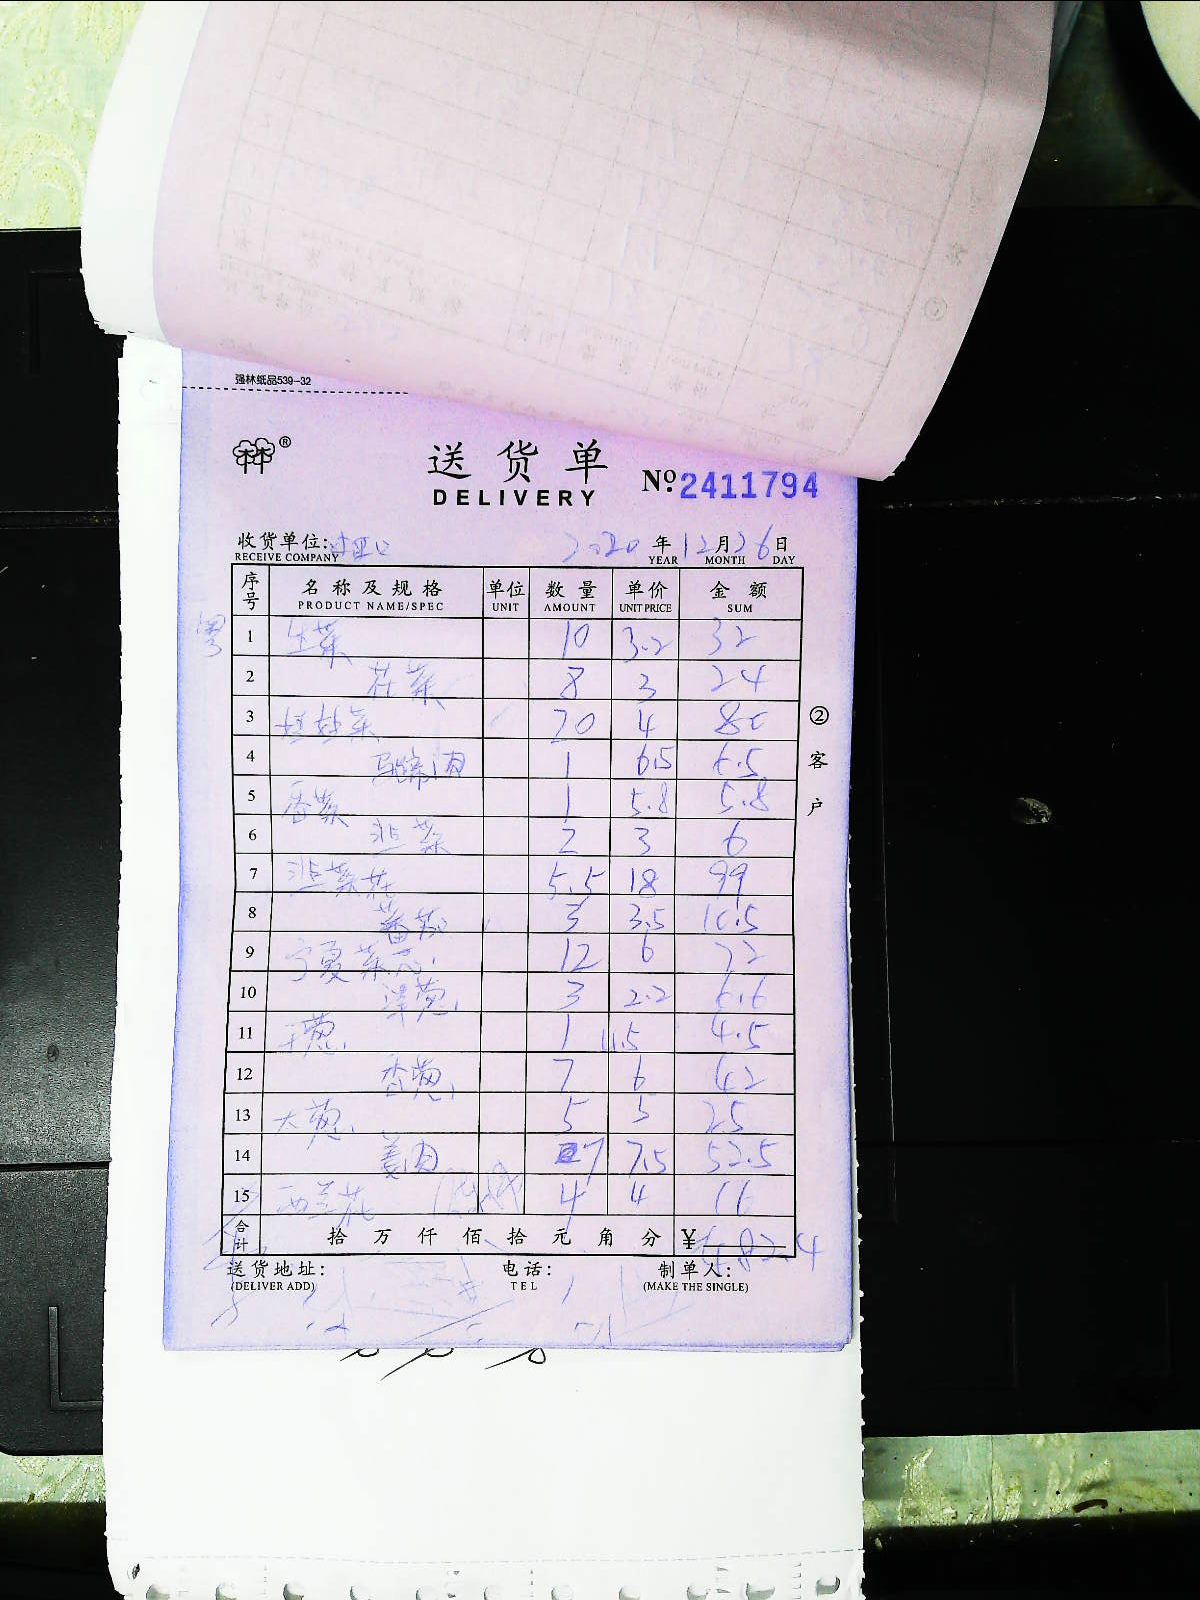 强林纸品539-32
林林®
送货单
DELIVERY
№ 2411794
收货单位: 2020年12月26日
RECEIVE COMPANY YEAR MONTH DAY
序号 名称及规格 单位 数量 单价 金额
PRODUCT NAME/SPEC UNIT AMOUNT UNIT PRICE SUM
1 生菜 10 3.2 32
2 花菜 8 3 24
3 娃娃菜 20 4 80
4 马蹄肉 1 6.5 6.5
5 香菜 1 5.8 5.8
6 韭菜 2 3 6
7 韭菜花 5.5 18 99
8 蕃茄 3 3.5 10.5
9 宁夏菜心 12 6 72
10 洋葱 3 2.2 6.6
11 干葱 1 4.5 4.5
12 香葱 7 6 42
13 大葱 5 5 25
14 姜肉 7 7.5 52.5
15 西兰花 4 4 16
合计 拾 万 仟 佰 拾 元 角 分 ¥ 482.4
送货地址: 电话: 制单人:
(DELIVER ADD) TEL (MAKE THE SINGLE)
②客户